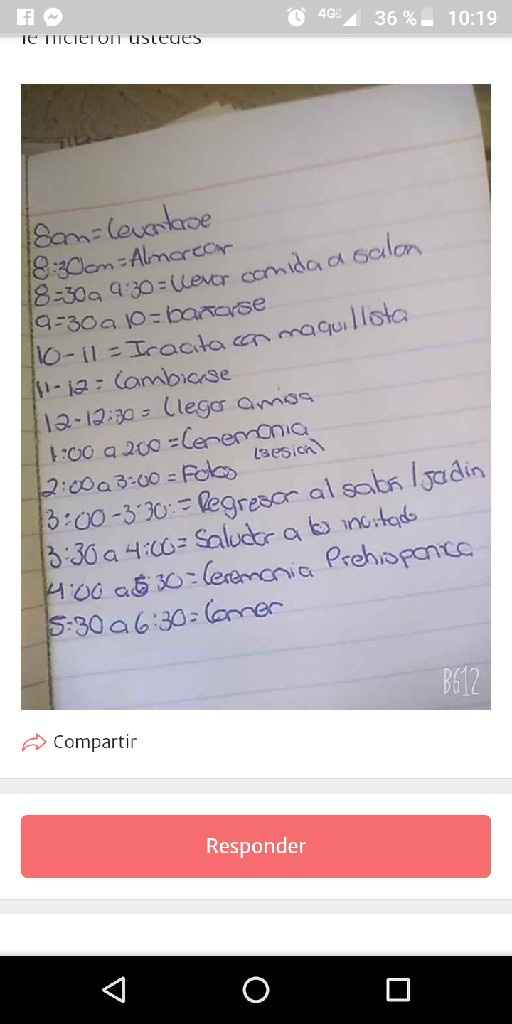 4G 36 % 10:19
le hicieron ustedes
8am = Levantarse
8:30am = Almorzar
8=30 a 9:30 = Llevar comida a salon
9=30 a 10 = bañarse
10-11 = Ir a cita con maquillista
11-12 = Cambiarse
12-12:30 = Llegar a misa
1:00 a 200 = Ceremonia
2:00 a 3:00 = Fotos (sesion)
3:00-3:30: = Regresar al salon / jardin
3:30 a 4:00 = Saludar a los invitado
4:00 a 5:30 = Ceremonia Prehispanica
5:30 a 6:30 = Comer
B612
Compartir
Responder